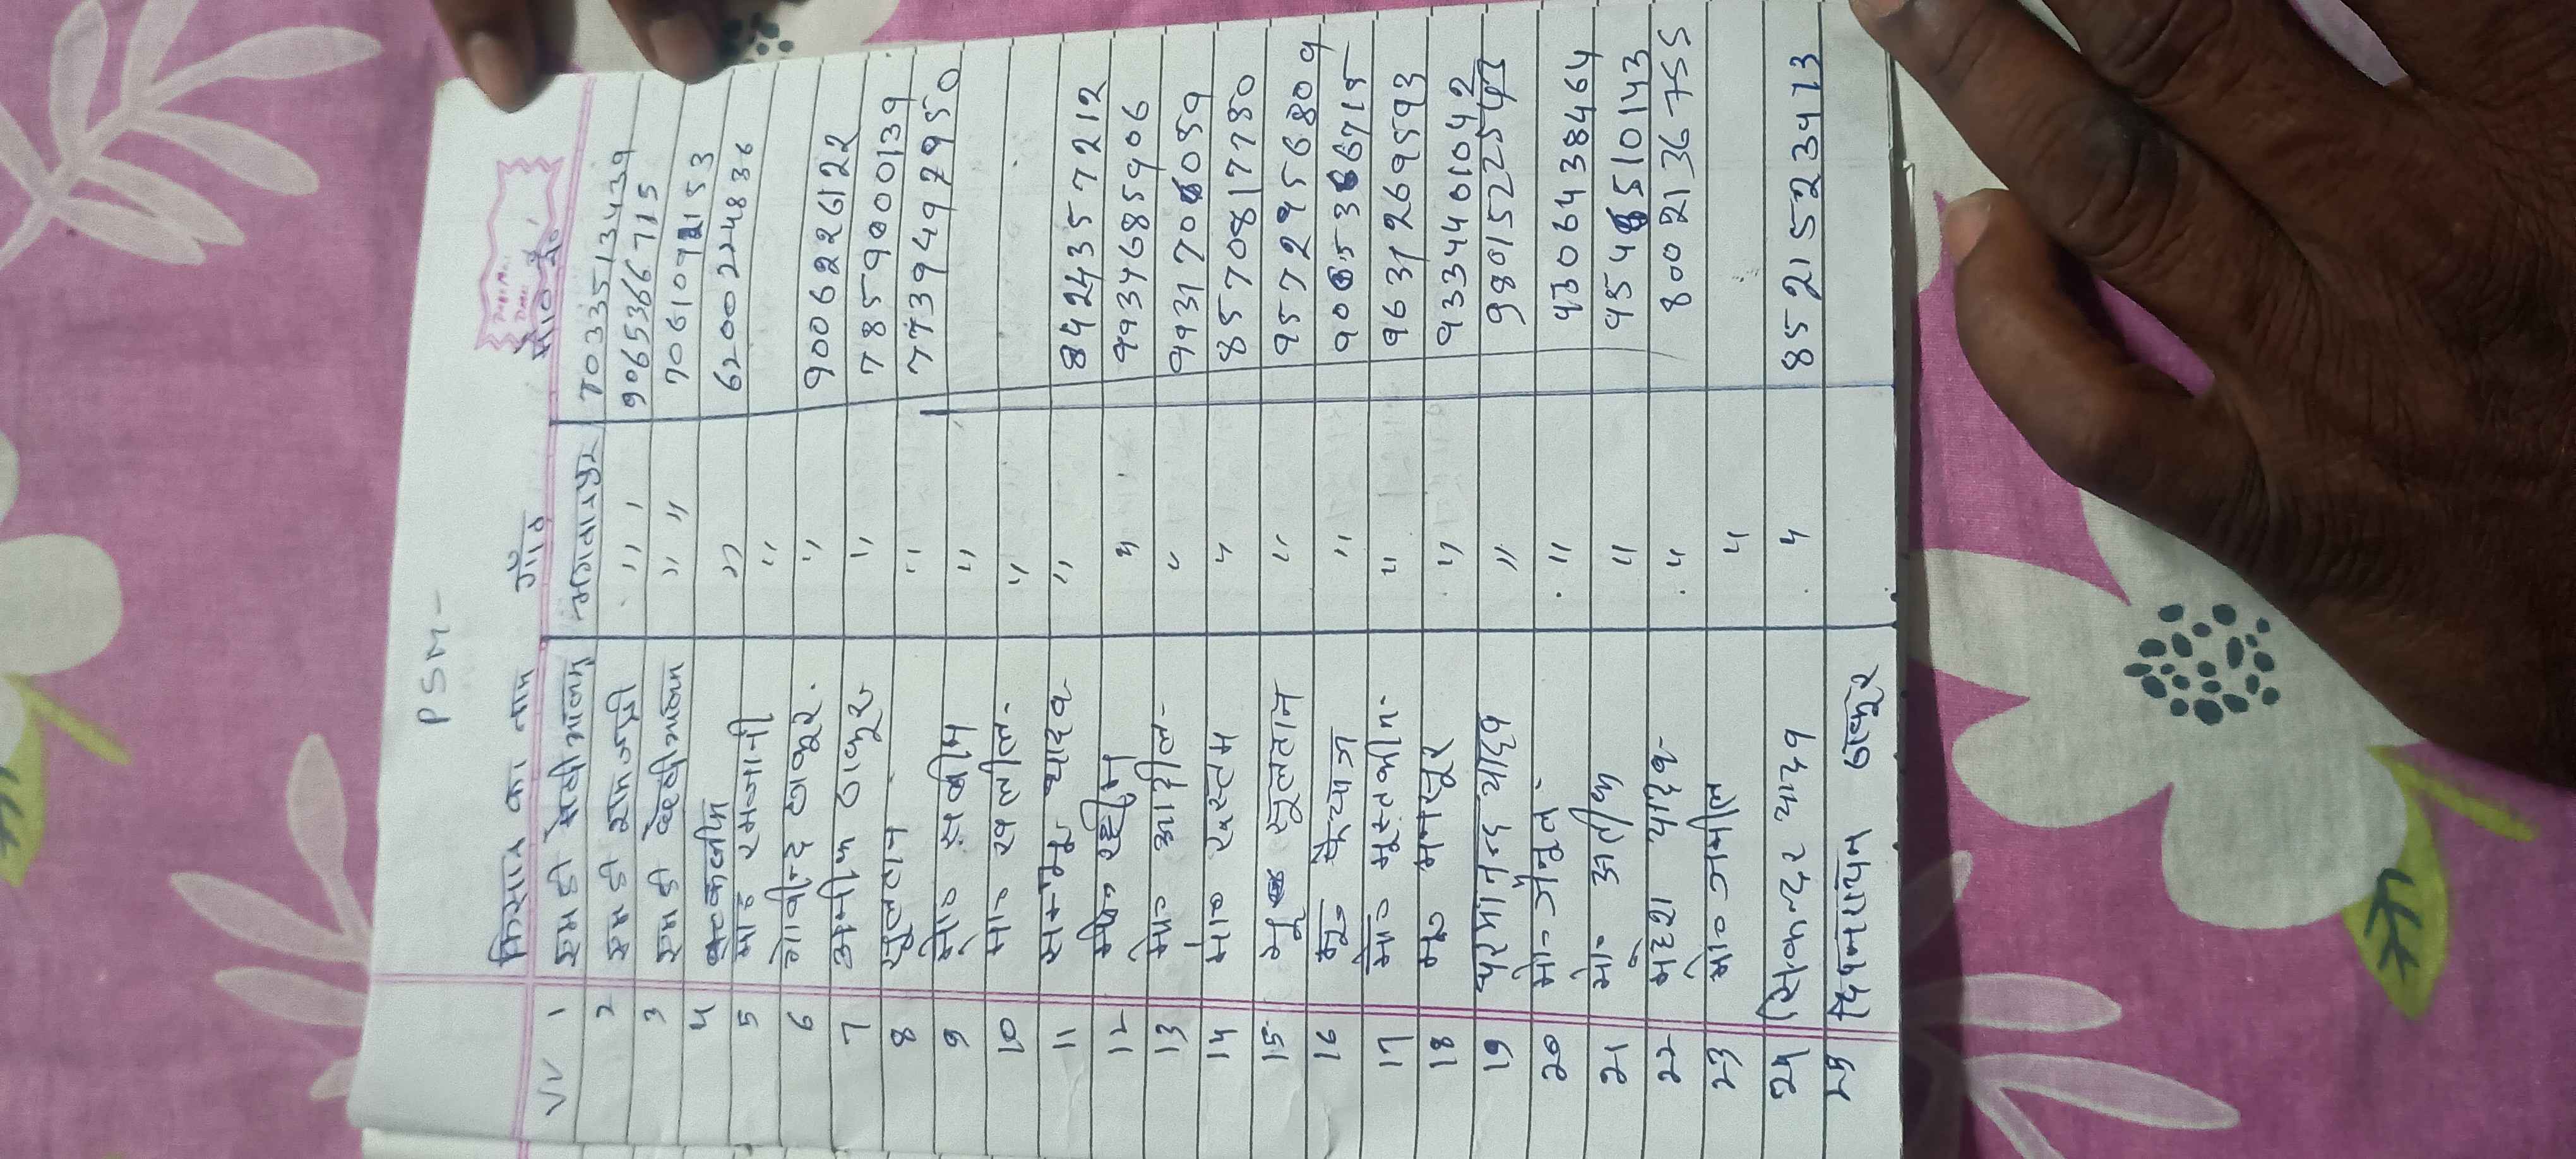 PSM -
किसान का नाम गाँव मो० नं०
1 एम डी सेवी आलम भगवानपुर 7033513439
2 एम डी शमशी " " 9065366715
3 एम डी वेवी आलम " " 7061072153
4 " 6200224836
5 मो० रमजानी "
6 गोवीन्द ठाकुर " 9006226122
7 अमीक ठाकुर " 7859000139
8 सुलतान " 7739497950
9 मो० सलीम "
10 मो० सलील "
11 यादव " 8424357212
12 मो० रहीम " 9934685906
13 मो० आदील " 993170 059
14 मो० रुस्तम " 8570817780
15 सुलतान " 9572956809
16 मु० फैयाज " 9065386715
17 मो० मुस्तकीम " 9631269593
18 मु० मनसुर " 9334401042
19 परमानन्द यादव "
20 मो० जैनुल " 9306438464
21 मो० अतीक " 510143
22 महेश यादव " 8002136755
23 मो० जमील "
24 सिकन्दर यादव " 8521523413
25 दिपनारायण ठाकुर